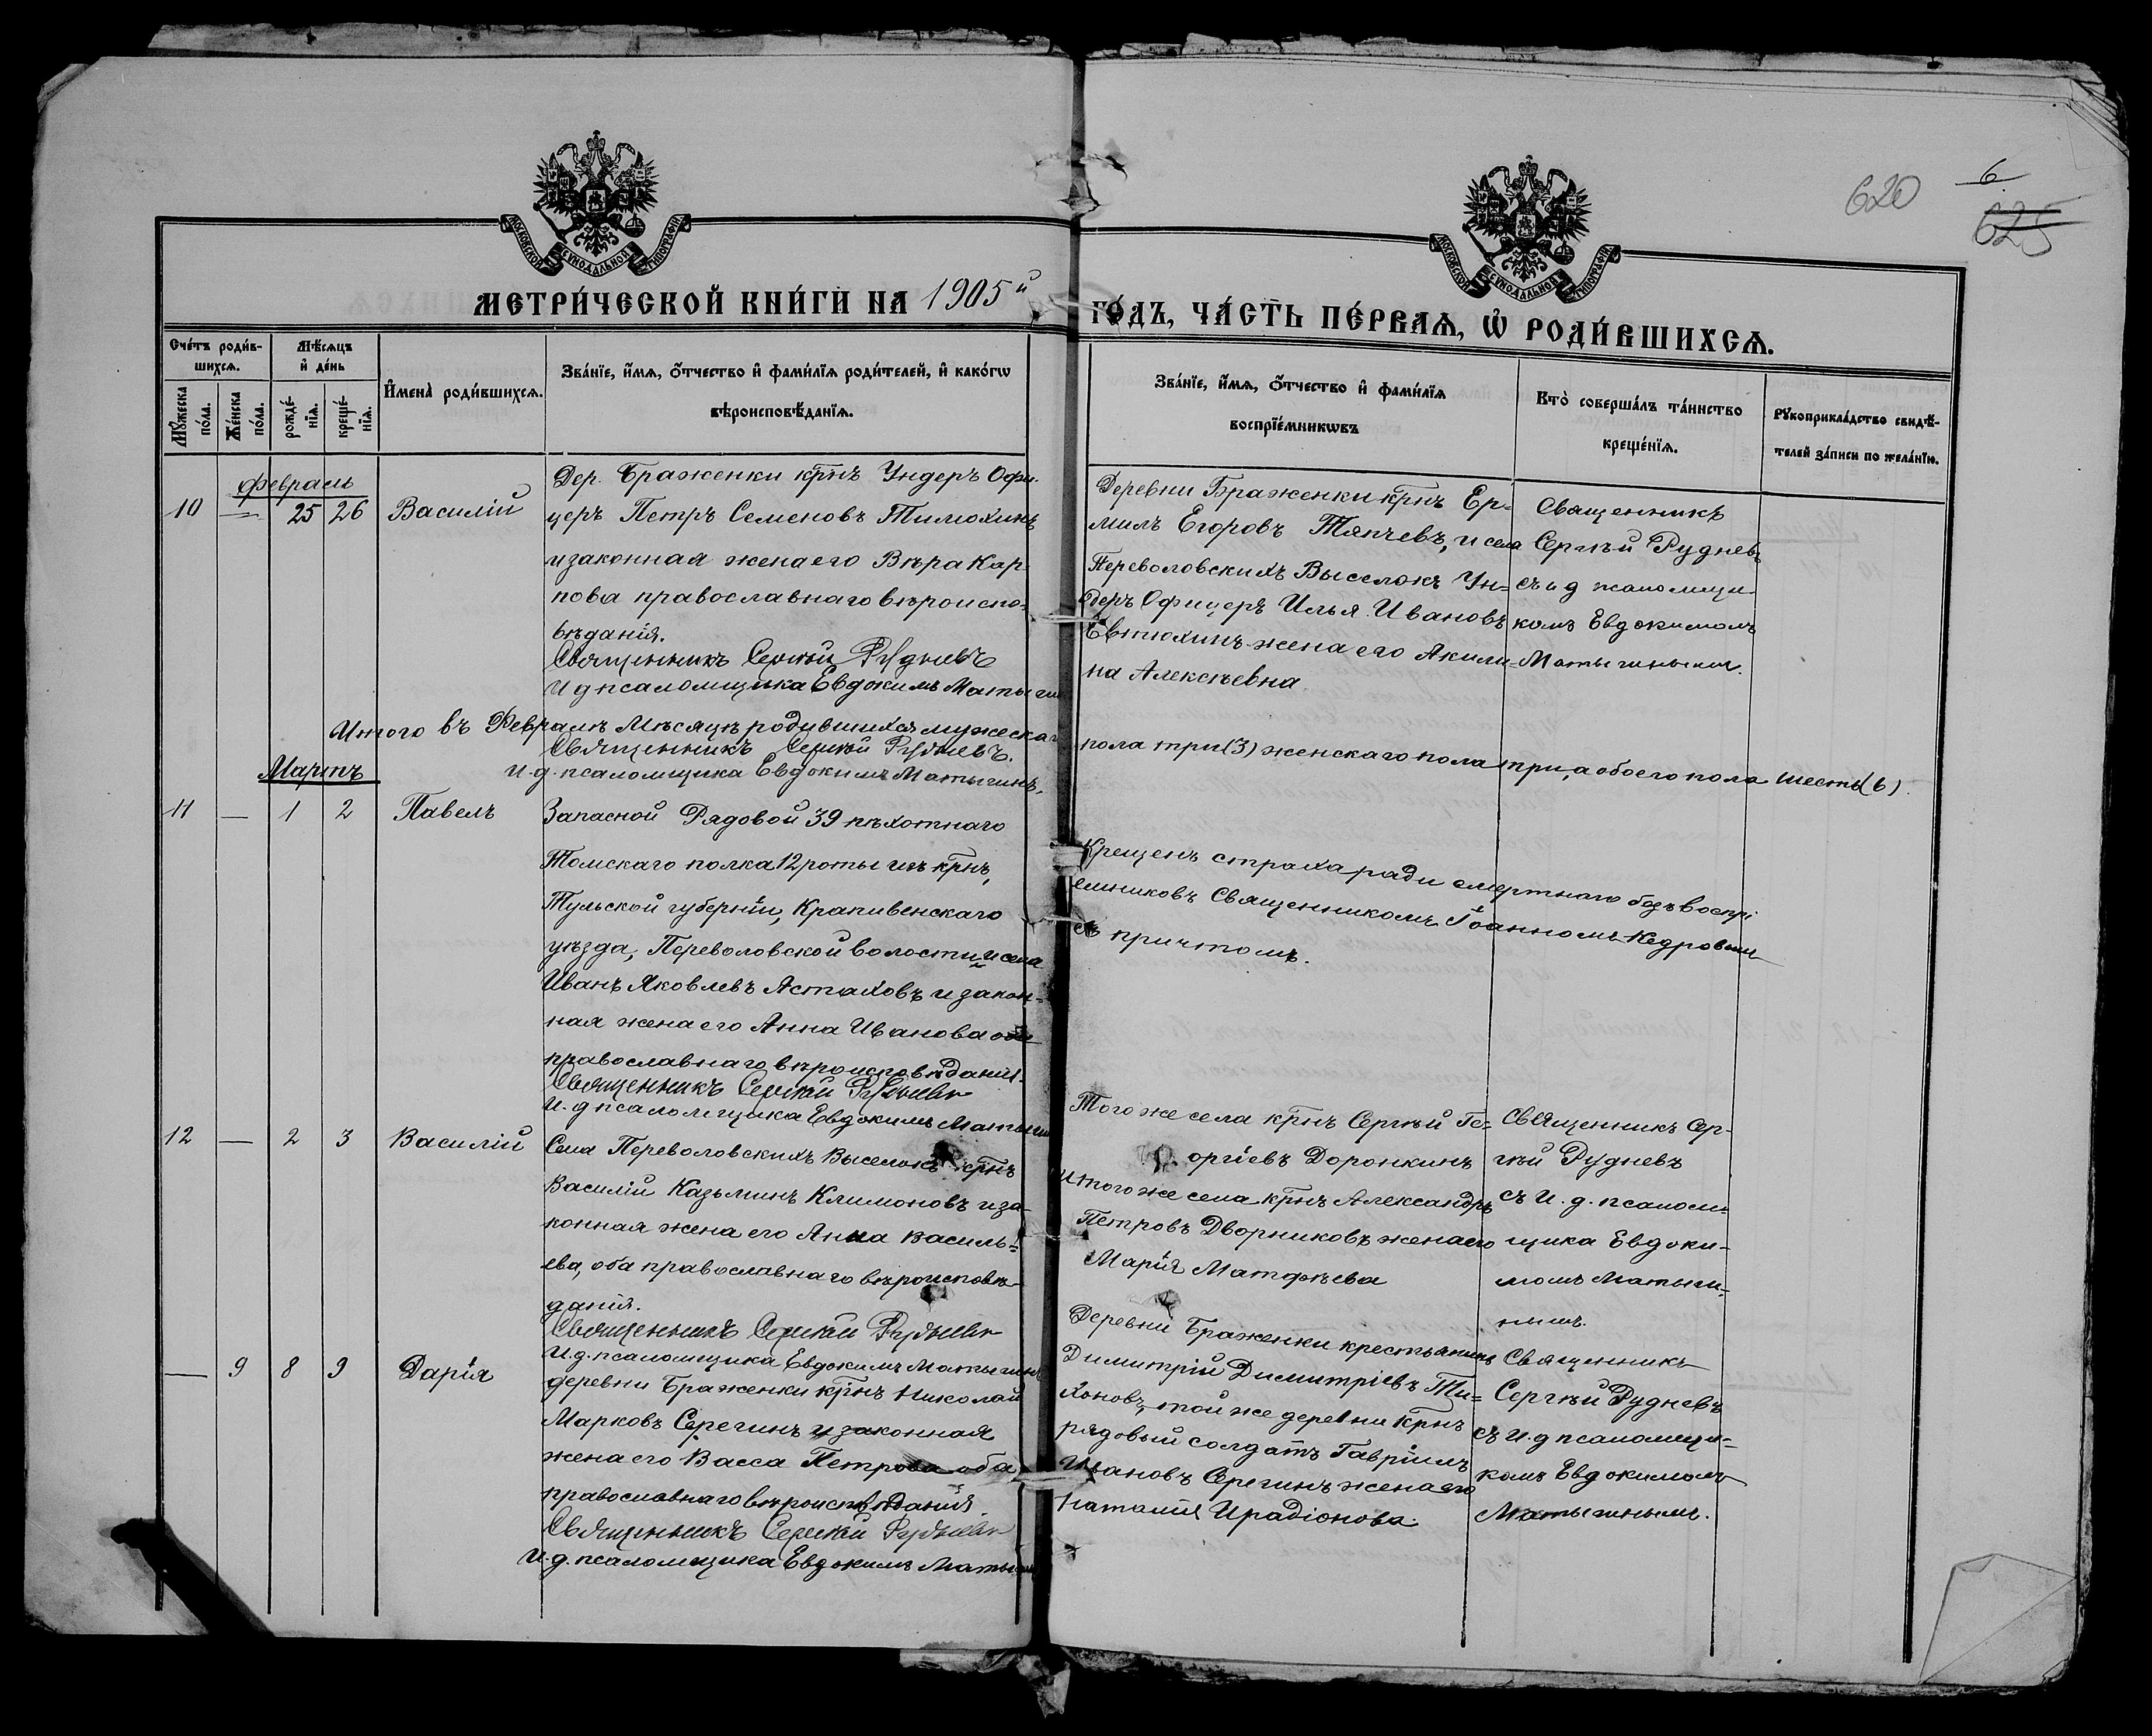 620
6
625
МОСКОВСКОЙ СУНОДАЛЬНОЙ ТИПОГРАФІИ
МОСКОВСКОЙ СУНОДАЛЬНОЙ ТИПОГРАФІИ
МЕТРИ́ЧЕСКОЙ КНИ́ГИ НА 1905й
ГО́ДЪ, ЧА́СТЬ ПЕ́РВАѦ, Ѡ҆ РОДИ́ВШИХСѦ.
Сче́тъ роди́в-
шихсѧ.
Мꙋ́жеска по́ла.
Же́нска по́ла.
Мѣ́сѧцъ
и҆ де́нь
рожде́-
нїѧ.
креще́-
нїѧ.
И҆мена̀ роди́вшихсѧ.
Зва́нїе, и҆́мѧ, ѻ҆́тчество и҆ фами́лїѧ роди́телей, и҆ како́гѡ
вѣроисповѣ́данїѧ.
Зва́нїе, и҆́мѧ, ѻ҆́тчество и҆ фами́лїѧ
воспрїе́мникѡвъ
Кто̀ соверша́лъ та́инство
креще́нїѧ.
Рꙋкоприкла́дство свидѣ́-
телей за́писи по жела́нїю.
Февраль
10 — 25 26 Василій
Дер. Браженки крнъ Ундеръ Офи-
церъ Петръ Семеновъ Тимохинъ
и законная жена его Вѣра Кар
пова православнаго вѣроиспо-
вѣданія.
Священникъ Сергѣй Рудневъ
И д псаломщика Евдокимъ Матыгин
Деревни Браженки крнъ Ер-
милъ Егоровъ Тяпчевъ, и села
Переволовскихъ Выселокъ Ун-
деръ Офицеръ Илья Ивановъ
Евтюхинъ жена его Акили-
на Алексѣевна
Священникъ
Сергѣй Рудневъ
съ и д псаломщи
комъ Евдокимомъ
Матыгинымъ.
Итого въ Февралѣ Мѣсяцѣ родившихся мужескаго
пола три (3) женскаго пола три, а обоего пола шесть (6).
Священникъ Сергѣй Рудневъ.
И. д. псаломщика Евдокимъ Матыгинъ.
Мартъ
11 — 1 2 Павелъ
Запасной Рядовой 39 пѣхотнаго
Томскаго полка 12 роты изъ крнъ,
Тульской губерніи, Крапивенскаго
уѣзда, Переволовской волости и села
Иванъ Яковлевъ Астаховъ и закон-
ная жена его Анна Иванова оба
православнаго вѣроисповѣданія.
Священникъ Сергѣй Рудневъ
И. д псаломщика Евдокимъ Матыгин
Крещенъ страха ради смертнаго безъ воспрі
емниковъ Священникомъ Іоанномъ Кедровымъ
съ причтомъ.
12 — 2 3 Василій
Села Переволовскихъ Выселокъ крнъ
Василій Казьминъ Климоновъ и за-
конная жена его Анна Василь-
ева, оба православнаго вѣроисповѣ-
данія.
Священникъ Сергѣй Рудневъ
И. д. псаломщика Евдокимъ Матыгинъ
Того же села крнъ Сергѣй Ге-
оргіевъ Доронкинъ
и того же села крнъ Александръ
Петровъ Дворниковъ жена его
Марія Матфѣева
Священникъ Сер-
гѣй Рудневъ
съ И. д. псалом-
щика Евдоки-
момъ Матыги-
нымъ.
— 9 8 9 Дарія
деревни Браженки крнъ Николай
Марковъ Серегинъ и законная
жена его Васса Петрова оба
православнаго вѣроисповѣданія.
Священникъ Сергѣй Рудневъ
И. д. псаломщика Евдокимъ Матыгин
Деревни Браженки крестьянинъ
Димитрій Димитріевъ Ти-
хоновъ, той же деревни крнъ
рядовый солдатъ Гавріилъ
Ивановъ Серегинъ жена его
Наталія Ирадіонова.
Священникъ
Сергѣй Рудневъ
съ И. д псаломщи-
комъ Евдокимомъ
Матыгинымъ.